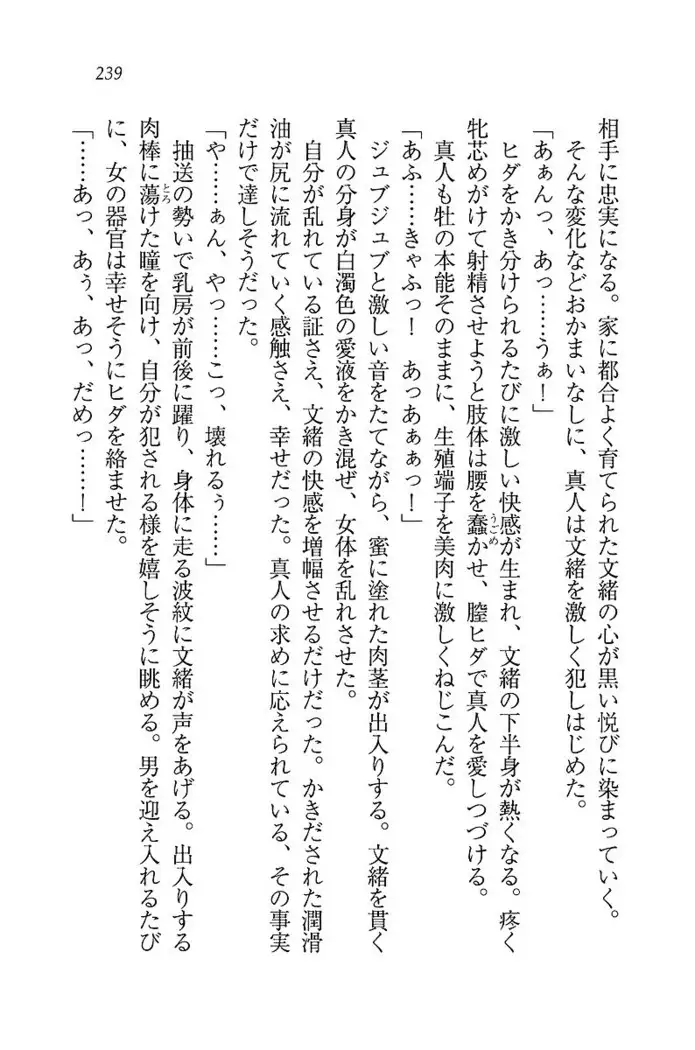 239
相手に忠実になる。家に都合よく育てられた文緒の心が黒い悦びに染まっていく。
そんな変化などおかまいなしに、真人は文緒を激しく犯しはじめた。
「あぁんっ、あっ……うぁ！」
ヒダをかき分けられるたびに激しい快感が生まれ、文緒の下半身が熱くなる。疼く
牝芯めがけて射精させようと肢体は腰を蠢かせ、膣ヒダで真人を愛しつづける。
うごめ
真人も牡の本能そのままに、生殖端子を美肉に激しくねじこんだ。
「あふ……きゃふっ！　あっあぁぁっ！」
ジュブジュブと激しい音をたてながら、蜜に塗れた肉茎が出入りする。文緒を貫く
真人の分身が白濁色の愛液をかき混ぜ、女体を乱れさせた。
自分が乱れている証さえ、文緒の快感を増幅させるだけだった。かきだされた潤滑
油が尻に流れていく感触さえ、幸せだった。真人の求めに応えられている、その事実
だけで達しそうだった。
「や……ぁん、やっ……こっ、壊れるぅ……」
抽送の勢いで乳房が前後に躍り、身体に走る波紋に文緒が声をあげる。出入りする
肉棒に蕩けた瞳を向け、自分が犯される様を嬉しそうに眺める。男を迎え入れるたび
とろ
に、女の器官は幸せそうにヒダを絡ませた。
「……あっ、あぅ、あっ、だめっ……！」